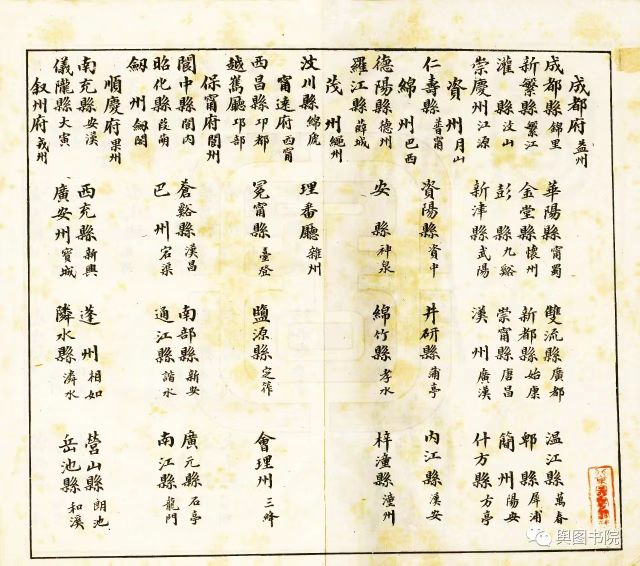 成都府 益州
成都縣 錦里 華陽縣 甯蜀 雙流縣 廣都 温江縣 萬春
新繁縣 繁江 金堂縣 懷州 新都縣 始康 郫縣 犀浦
灌縣 汶山 彭縣 九谿 崇甯縣 唐昌 簡州 陽安
崇慶州 江源 新津縣 武陽 漢州 廣漢 什方縣 方亭
資州 月山
仁壽縣 普甯 資陽縣 資中 井研縣 甫亭 内江縣 漢安
綿州 巴西
德陽縣 德州 安縣 神泉 綿竹縣 孝水 梓潼縣 潼州
羅江縣 薛城
茂州 繩州
汶川縣 綿虒 理番廳 雜州
甯遠府 西甯
西昌縣 邛都 冕甯縣 臺登 鹽源縣 定筰 會理州 三絳
越嶲廳 邛部
保甯府 閬州
閬中縣 閬内 蒼谿縣 漢昌 南部縣 新安 廣元縣 石亭
昭化縣 葭萌 巴州 宕渠 通江縣 諾水 南江縣 龍門
劍州 劍閣
順慶府 果州
南充縣 安漢 西充縣 新興 蓬州 相如 營山縣 朗池
儀隴縣 大寅 廣安州 賨城 鄰水縣 潾水 岳池縣 和溪
叙州府 戎州
舆图书院